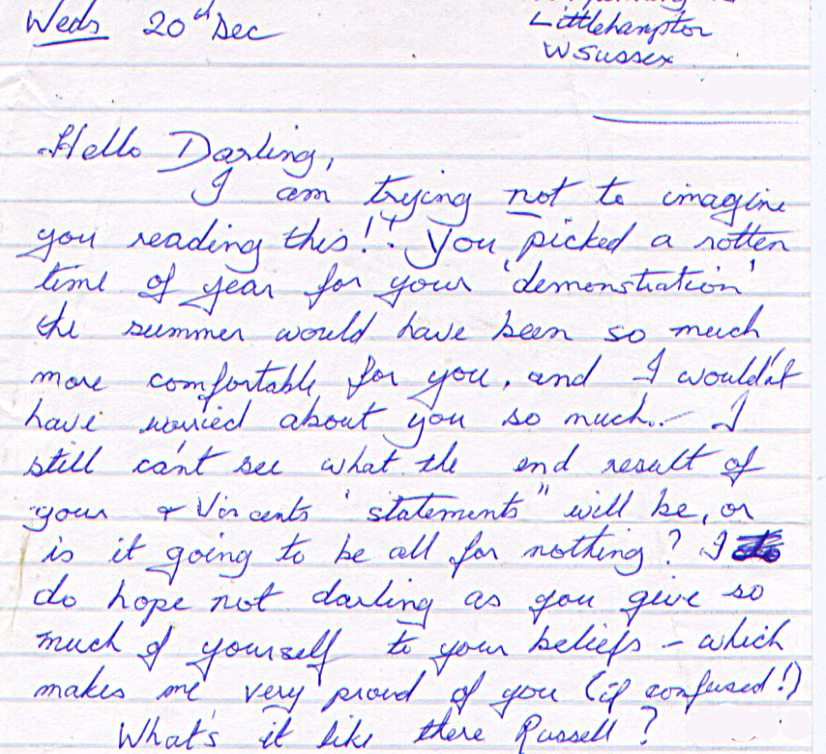 Weds 20th Dec
Littlehampton
W Sussex
Hello Darling,
I am trying not to imagine
you reading this!! You picked a rotten
time of year for your 'demonstration'
the summer would have been so much
more comfortable for you, and I wouldn't
have worried about you so much.. - I
still can't see what the end result of
your & Vincents 'statements" will be, or
is it going to be all for nothing? I
do hope not darling as you give so
much of yourself to your beliefs - which
makes me very proud of you (if confused!)
What's it like there Russell?